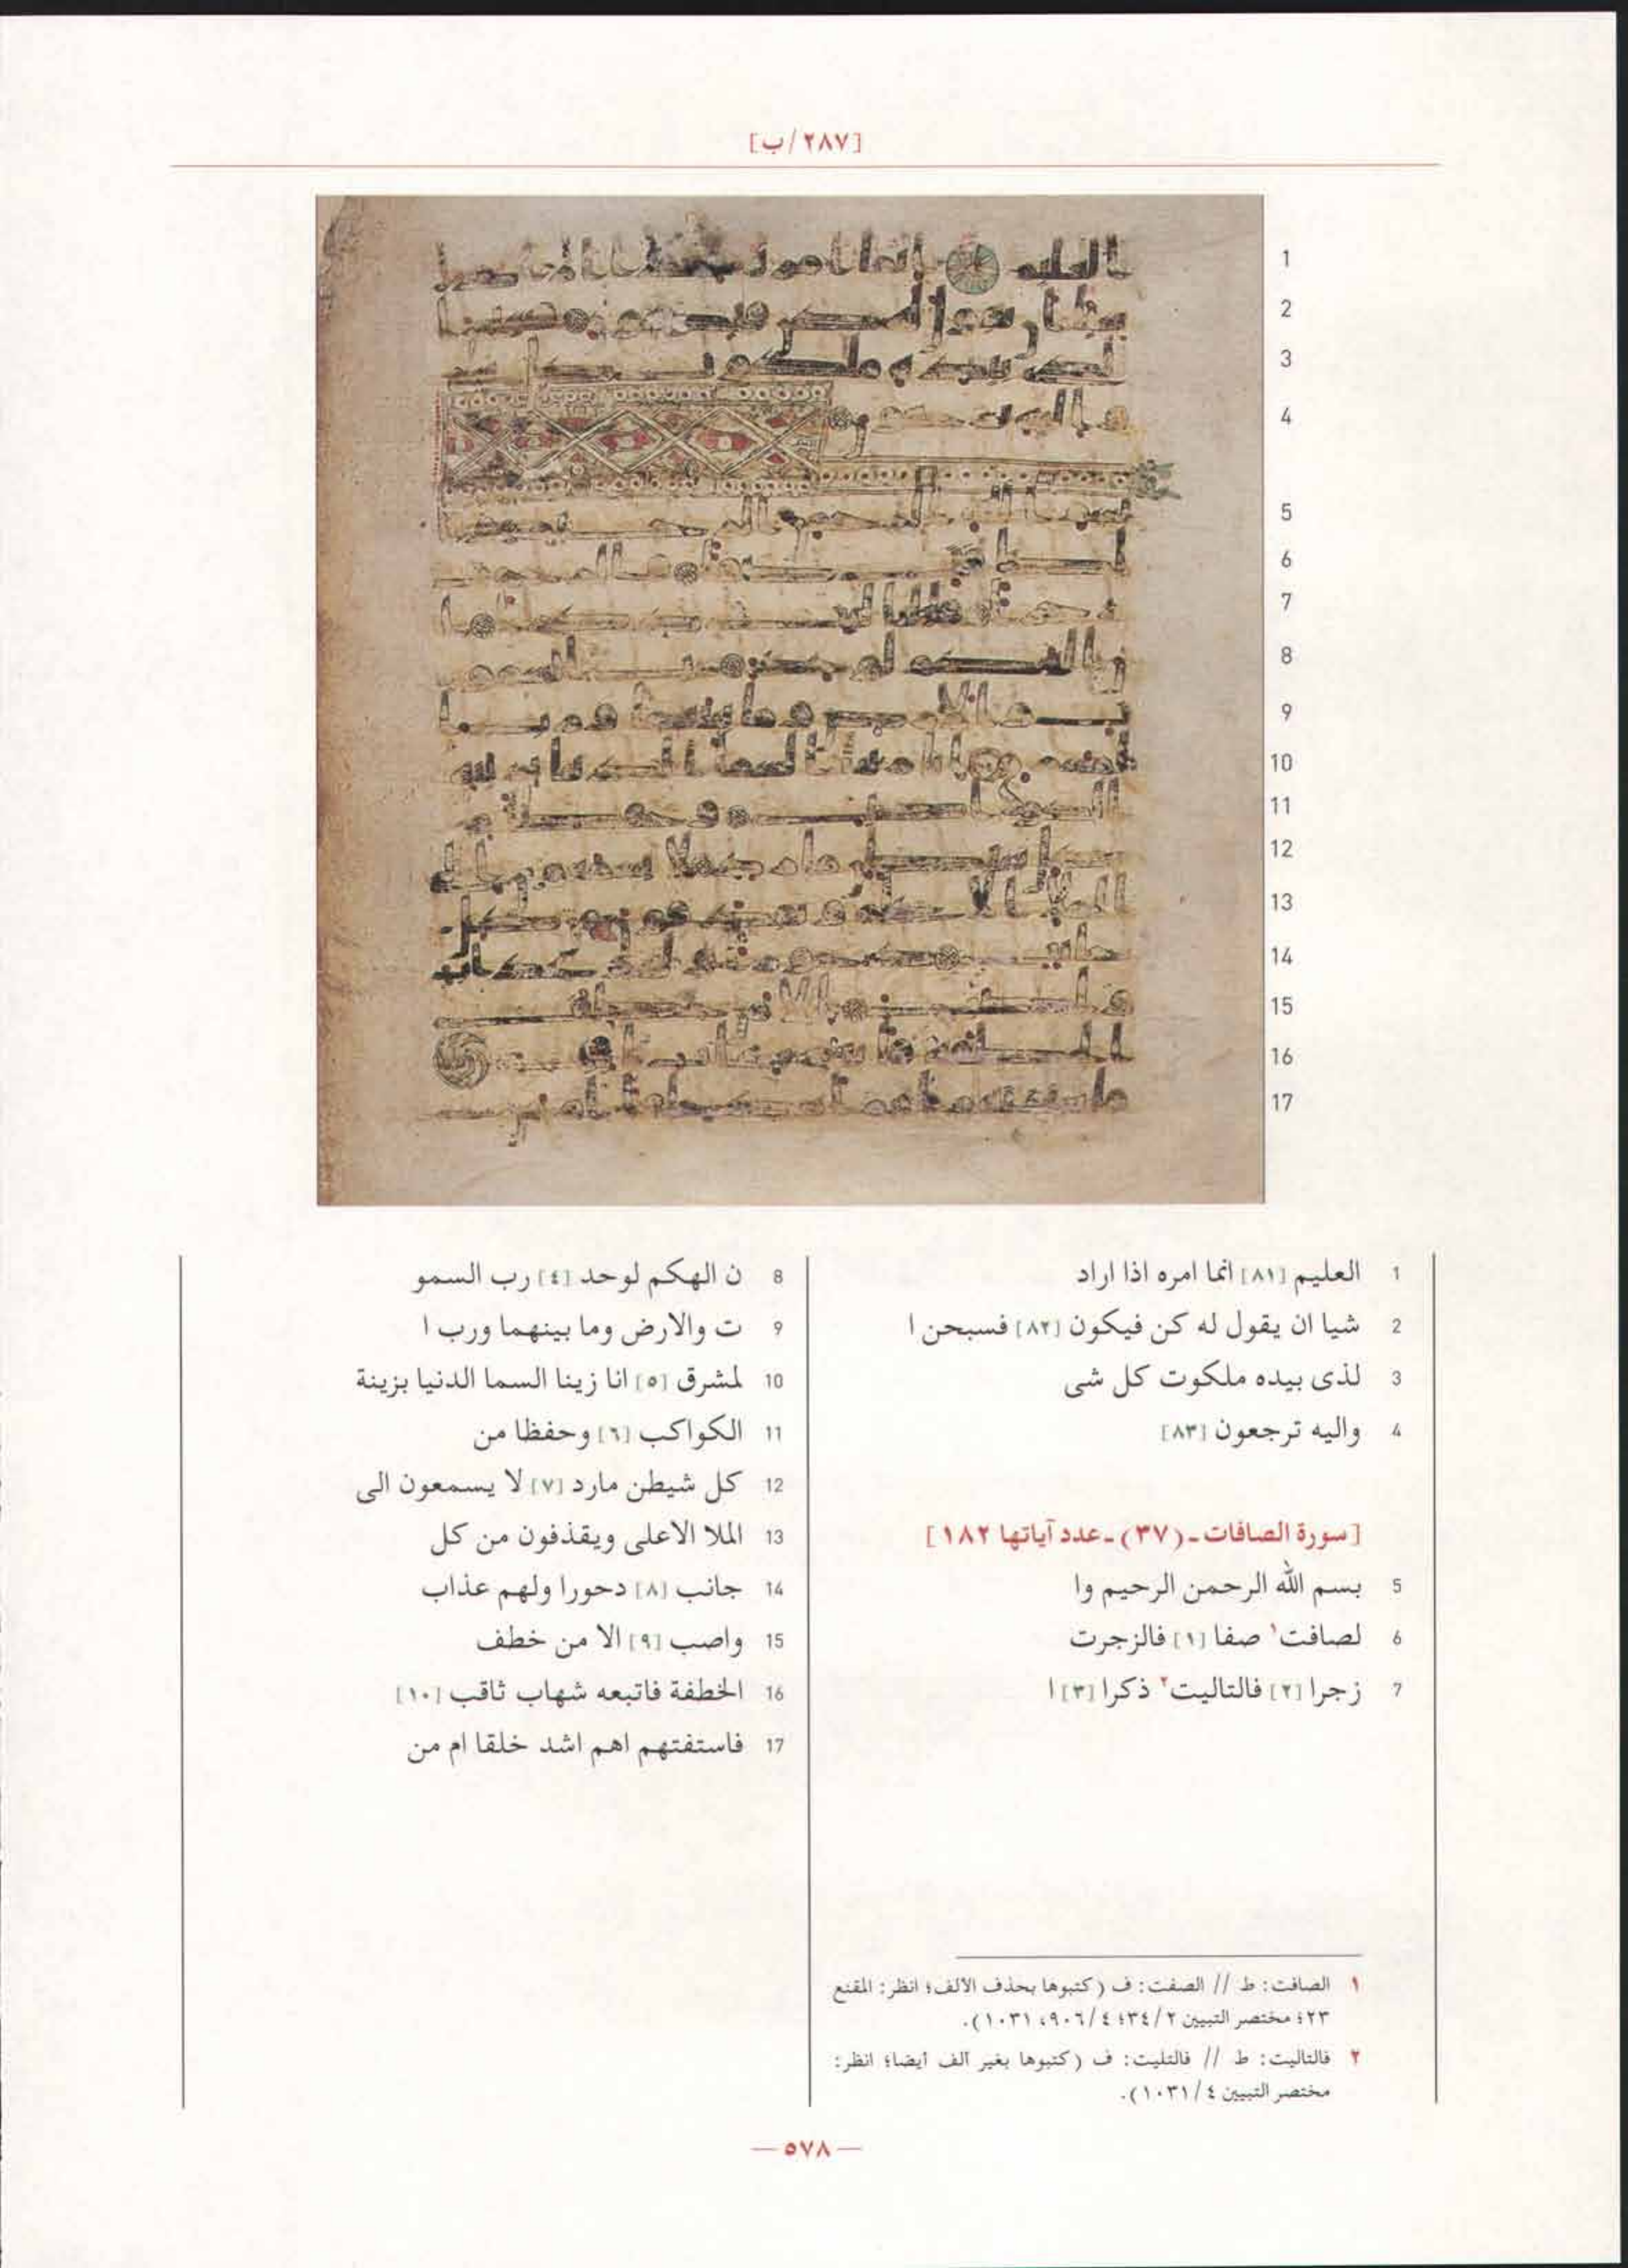 [٢٨٧/ب]
1 العليم [٨١] انما امره اذا اراد
2 شيا ان يقول له كن فيكون [٨٢] فسبحن ا
3 لذى بيده ملكوت كل شى
4 واليه ترجعون [٨٣]
[سورة الصافات ـ (٣٧) ـ عدد آياتها ١٨٢]
5 بسم الله الرحمن الرحيم وا
6 لصافت١ صفا [١] فالزجرت
7 زجرا [٢] فالتاليت٢ ذكرا [٣] ا
8 ن الهكم لوحد [٤] رب السمو
9 ت والارض وما بينهما ورب ا
10 لمشرق [٥] انا زينا السما الدنيا بزينة
11 الكواكب [٦] وحفظا من
12 كل شيطن مارد [٧] لا يسمعون الى
13 الملا الاعلى ويقذفون من كل
14 جانب [٨] دحورا ولهم عذاب
15 واصب [٩] الا من خطف
16 الخطفة فاتبعه شهاب ثاقب [١٠]
17 فاستفتهم اهم اشد خلقا ام من
١ الصافت: ط // الصفت: ف (كتبوها بحذف الالف؛ انظر: المقنع
٢٣؛ مختصر التبيين ٢/٣٤؛ ٤/٩٠٦، ١٠٣١).
٢ فالتاليت: ط // فالتليت: ف (كتبوها بغير ألف أيضا؛ انظر:
مختصر التبيين ٤/١٠٣١).
— ٥٧٨ —